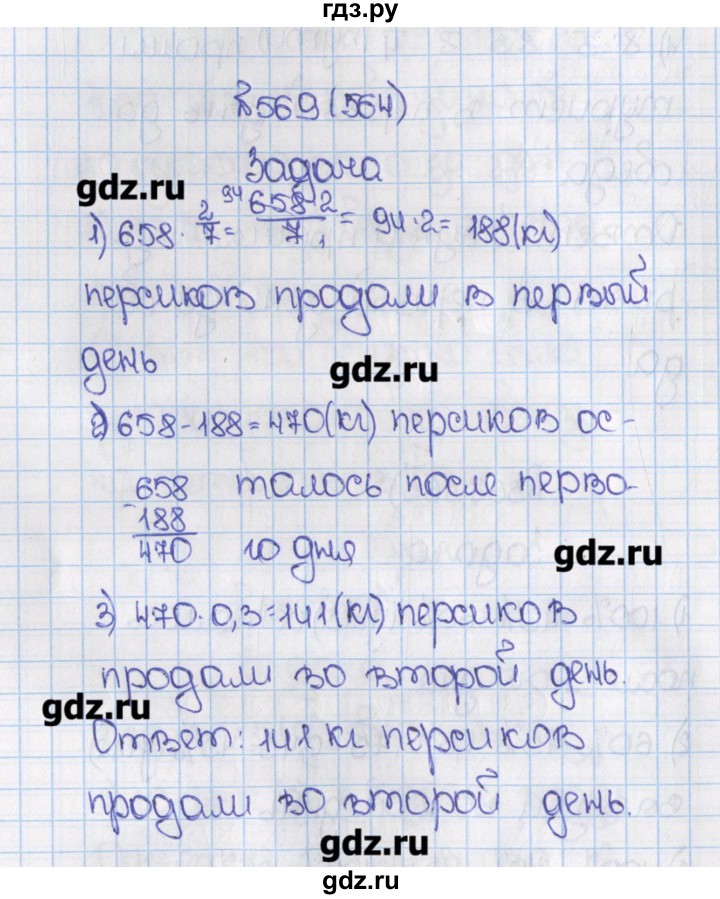 гдз.ру
№569(564)
Задача
gdz.ru
1) 658 · 2/7 = 658·2/7 = 94·2 = 188(кг)
94
1
персиков продали в первый
день
gdz.ru
2) 658-188=470(кг) персиков ос-
658 талось после перво-
-188
470 го дня
gdz.ru
3) 470·0,3=141(кг) персиков
продали во второй день.
gdz.ru
Ответ: 141 кг персиков
продали во второй день.
gdz.ru
gdz.ru